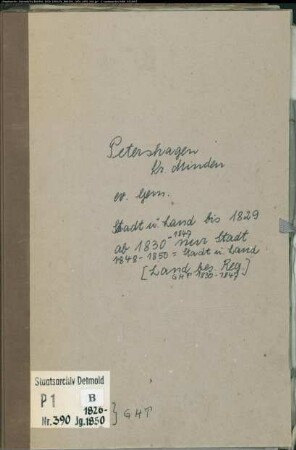 Petershagen
Kr. Minden
ev. Gem.
Stadt u. Land bis 1829
ab 1830 -1847 nur Stadt
1848-1850 = Stadt u. Land
[Land bes. Reg.]
GHT 1830-1847
Staatsarchiv Detmold
P 1 B
1826-
Nr. 390 Jg. 1850
} GHT